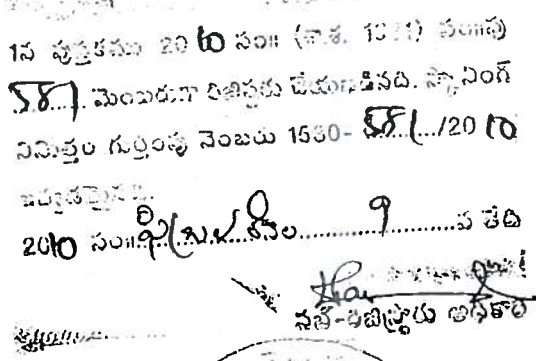 1వ పుస్తకము 2010 సం॥ (శా.శ. 1931) సం॥పు
581 నెంబరుగా రిజిస్టరు చేయబడినది. స్కానింగ్
నిమిత్తం గుర్తింపు నెంబరు 1530- 581/2010
2010 సం॥ ఫిబ్రవరి నెల 9 వ తేది
సబ్-రిజిస్ట్రారు అధికారి